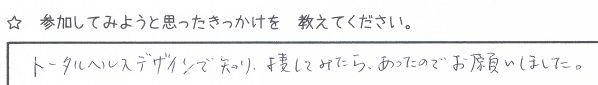 ☆ 参加してみようと思ったきっかけを 教えてください。
トータルヘルスデザインで知り、捜してみたら、あったのでお願いしました。